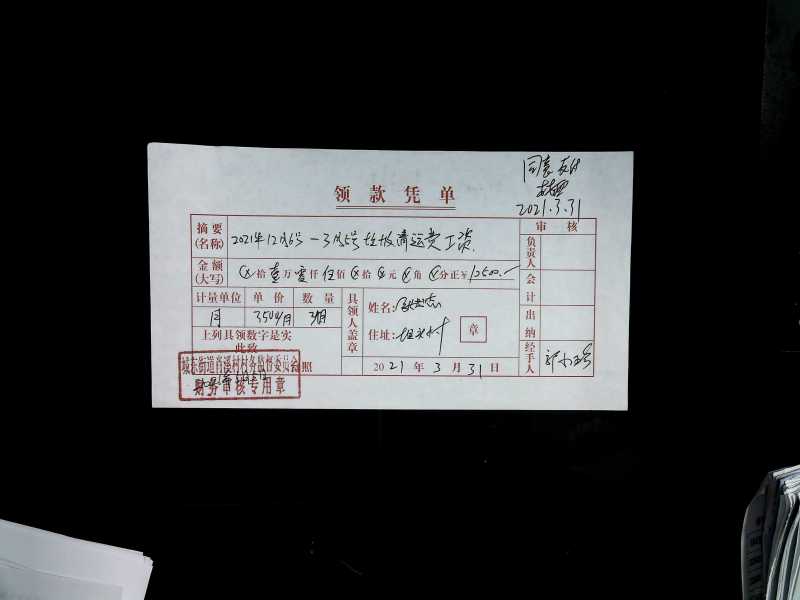 领款凭单
同意支付
2021.3.31
摘要(名称) 2021年12月6号—3月5号垃圾清运费工资.
审核
金额(大写) ⊗拾壹万零仟伍佰⊗拾⊗元⊗角⊗分正¥12500.-
负责人
会计
出纳
经手人
计量单位 单价 数量
月 3500/月 3月
上列具领数字是实
此致
照
具领人盖章
姓名:
住址:
章
2021年3月31日
城东街道肖溪村村务监督委员会
财务审核专用章